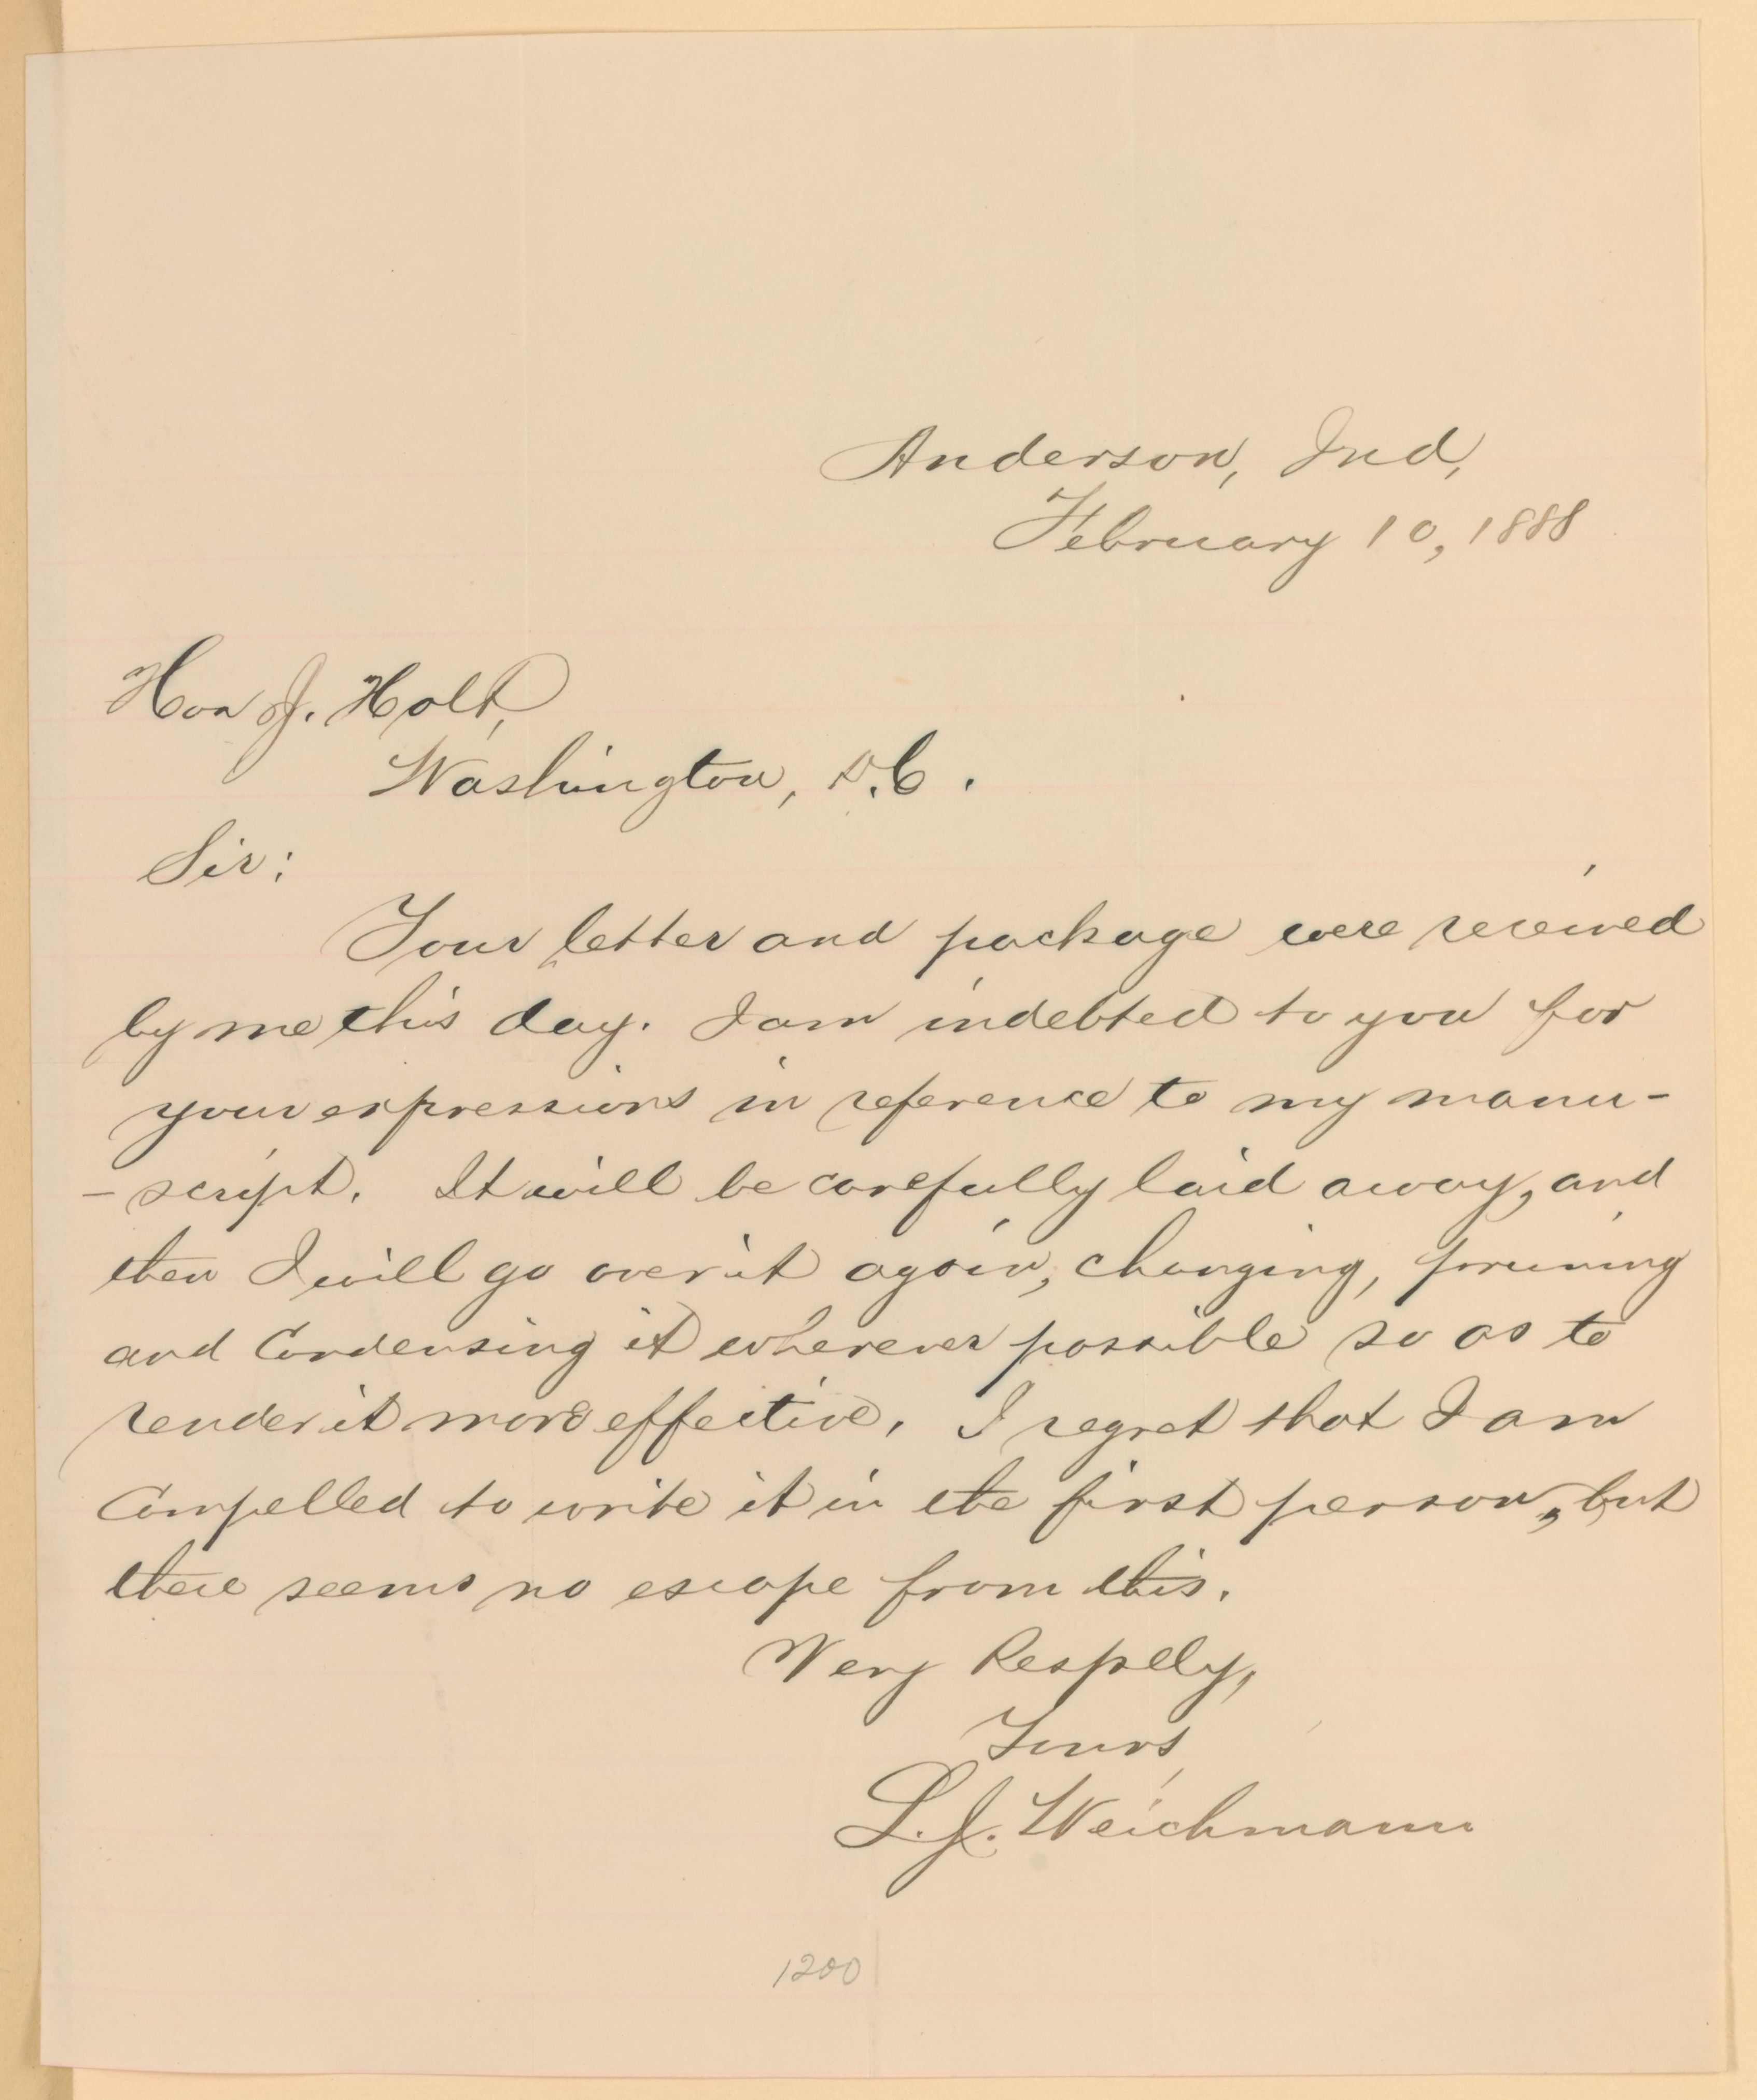 Anderson, Ind,
February 10, 1888
Hon J. Holt,
Washington, D.C.
Sir:
Your letter and package were received
by me this day. I am indebted to you for
your expressions in reference to my manu-
-script. It will be carefully laid away, and
then I will go over it again, changing, pruning
and Condensing it wherever possible so as to
render it more effective. I regret that I am
Compelled to write it in the first person, but
there seems no escape from this.
Very Respelly,
Yours,
L. J. Weichmann
1200